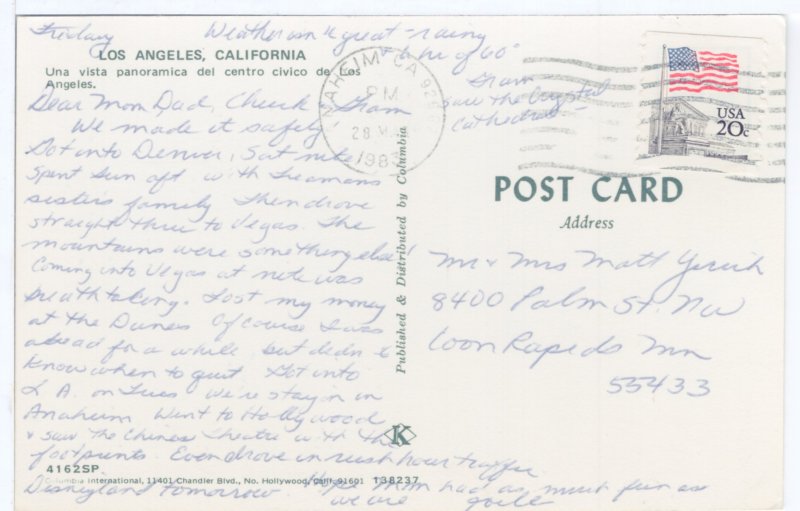 Friday Weather isn't great - rainy
& hi of 60°
LOS ANGELES, CALIFORNIA
Una vista panoramica del centro civico de Los
Angeles.
Gram
saw the Crystal
Cathedral -
Dear Mom, Dad, Chuck & Gram
We made it safely!
Got into Denver, Sat nite
Spent Sun aft. with
sisters family. Then drove
straight thru to Vegas. The
mountains were something else!
Coming into Vegas at nite was
breathtaking. Lost my money
at the Dunes Of course I was
ahead for a while but didn't
know when to quit Got into
L.A. on Tues We're stayin in
Anaheim Went to Hollywood
& saw the Chinese Theatre with the
footprints. Even drove in rush hour traffic
Disneyland tomorrow. Hope had as much fun as
we are
4162SP
Columbia International, 11401 Chandler Blvd., No. Hollywood, Calif. 91601 138237
Published & Distributed by Columbia
K
ANAHEIM CA
PM
28
USA
20c
POST CARD
Address
Mr & Mrs Matt
8400 Palm St. NW
Coon Rapids Mn
55433